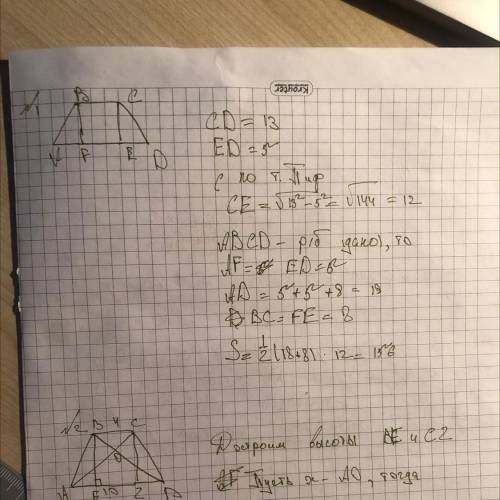 №1
B C
A F E D
CD = 13
ED = 5
по т. Пиф
CE = √13² - 5² = √144 = 12
ABCD - р/б (дано), то
AF = ED = 5
AD = 5 + 5 + 8 = 18
BC = FE = 8
S = 1/2 (18 + 8) · 12 = 156
№2 B 4 C
O
A E 10 Z D
Достроим высоты BE и CZ
Пусть x - AO, тогда